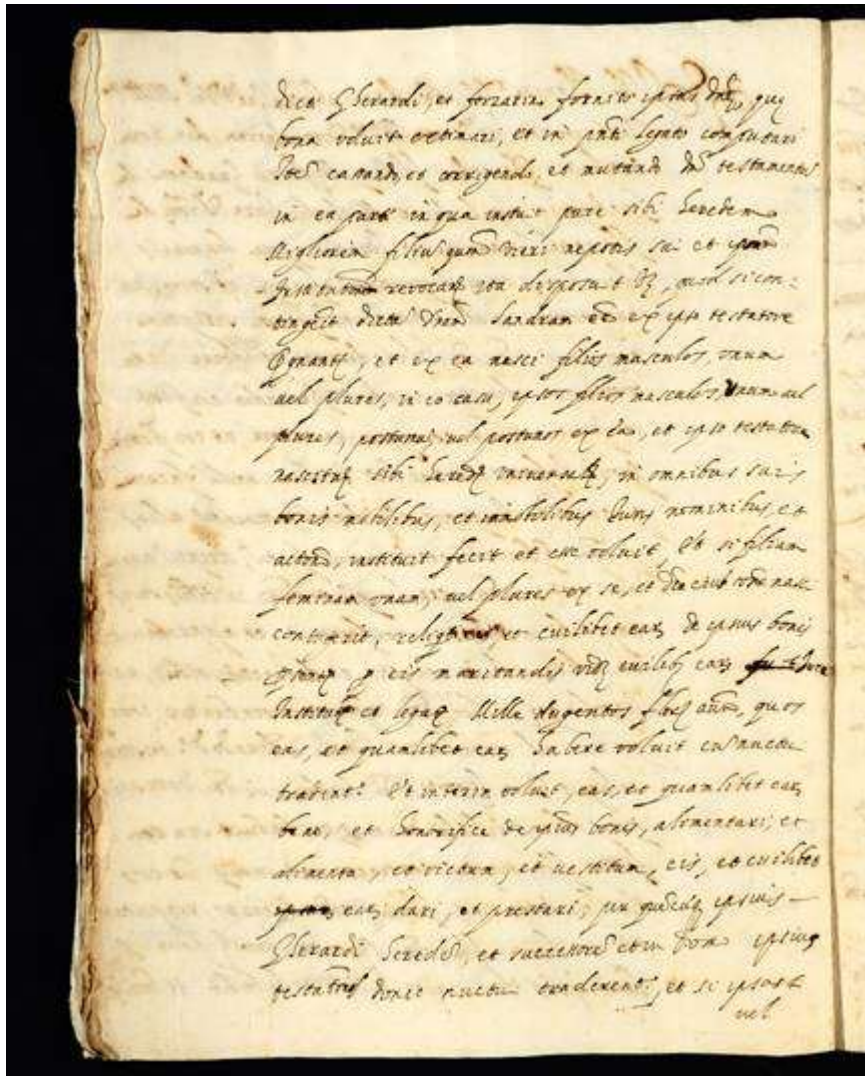 dicti Gherardi, et forzerin fornito ipsius dñe, que
bona voluit extimari, et in pñti legato computari
Itẽ cassando, et corrigendo, et mutando dñ testamentũ
in ea parte in qua instituit pure sibi heredem
Migliorem filius quonđ Vieri nepotis sui et
revocarẽ ita disposuit vz, quod si con-
tingerit dictã Dnam Sandram ex ipso testatore
pgnantẽ, et ex ea nasci filios masculos, unum
vel plures, in eo casu, ipsos filios masculos, unum vel
plures, postumũ, vel postumos ex ea, et ipso testatore
nascitur sibi heredẽ universalẽ, in omnibus suis
bonis mobilibus, et immobilibus iuris nominibus, et
actionib, instituit fecit et esse voluit, Et si filiam
feminam unam, vel plures ex se, et nas-
contigerit, et cuilibet earz de ipsius bonis
p eis maritandis videz cuilibz earz Jure
Institutẽ et legatẽ Mille dugentos florẽ aurẽ, quos
eas, et quamlibet earz habere voluit cũ nuptu
tradent: Et interim voluit, eas, et quamlibet earz
bene, et honorifice de ipsius bonis, alimentari, et
alimenta, et victum, et vestitum, eis, et cuilibet
earz dari, et prestari, per ipsius
Gherardi heredes, et successores etiã bona ipsius
testatoris donec nuptui traderent, et si ipsos
vel